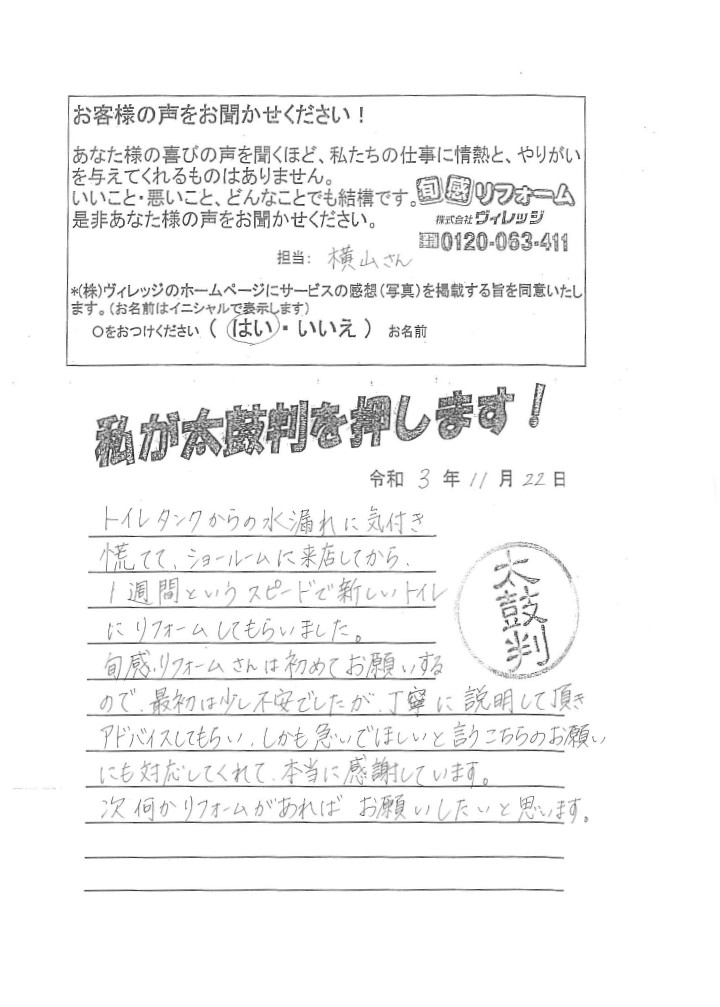 お客様の声をお聞かせください！
あなた様の喜びの声を聞くほど、私たちの仕事に情熱と、やりがい
を与えてくれるものはありません。
いいこと・悪いこと、どんなことでも結構です。
是非あなた様の声をお聞かせください。
旬感リフォーム
株式会社ヴィレッジ
0120-063-411
担当: 横山さん
*(株)ヴィレッジのホームページにサービスの感想(写真)を掲載する旨を同意いたし
ます。(お名前はイニシャルで表示します)
○をおつけください ( はい・いいえ ) お名前
私が太鼓判を押します！
令和 3 年 11 月 22 日
トイレタンクからの水漏れに気付き
慌てて、ショールームに来店してから、
1週間というスピードで新しいトイレ
にリフォームしてもらいました。
旬感リフォームさんは初めてお願いする
ので、最初は少し不安でしたが、丁寧に説明して頂き
アドバイスしてもらい、しかも急いでほしいと言うこちらのお願い
にも対応してくれて、本当に感謝しています。
次何かリフォームがあれば お願いしたいと思います。
太鼓判